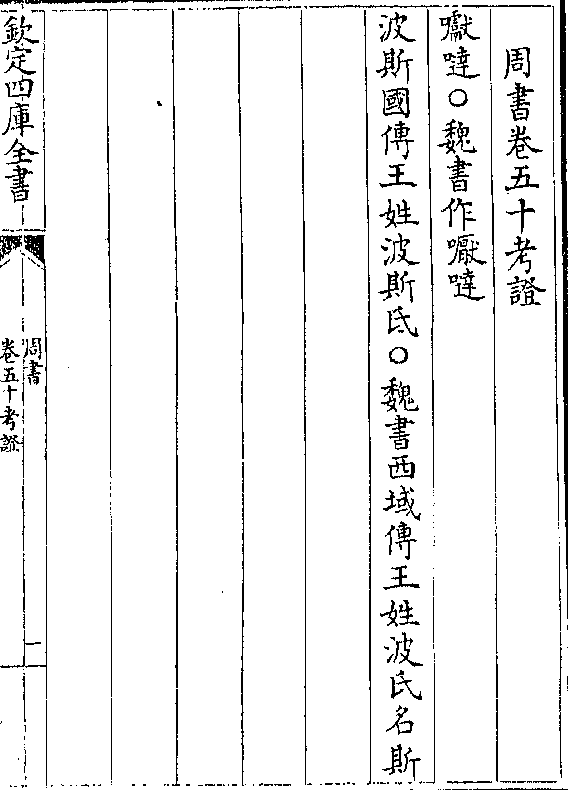 周書卷五十考證
囐噠○魏書作嚈噠
波斯國傳王姓波斯氏○魏書西域傳王姓波氏名斯
欽定四庫全書
周書
卷五十考證
一